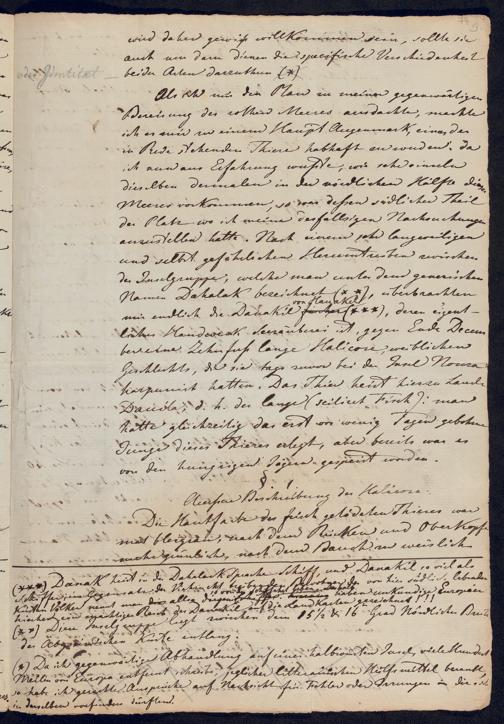 wird daher gewiss willkommen sein, sollte sie
auch nur dazu dienen die specifische Verschiedenheit
oder Identitet
beider Arten darzuthun (*)
Als ich mir den Plan zu meiner gegenwärtigen
Bereisung des rothen Meeres ausdachte, machte
ich es mir zu einem Haupt Augenmerk eines der
in Rede stehenden Thiere habhaft zu werden. Da
ich nun aus Erfahrung wusste, wie selten
dieselben dermalen in der nördlichen Hälfte dieses
Meeres vorkommen, so war dessen südlicher Theil
der Platz wo ich meine desfallsigen Nachsuchungen
anzustellen hatte. Nach einem sehr langweiligen
und selbst gefährlichen Herumtreiben zwischen
der Inselgruppe, welche man unter dem generischen
Namen Dahalak bezeichnet (**), überbrachten
mir endlich die Danakil (***), deren eigent-
liches Handwerk Seeräuberei ist, gegen Ende Decem
ber eine Zehn Fuss lange Halicore, weiblichen
Geschlechts, die sie tags zuvor bei der Insel
harpunirt hatten. Das Thier heisst hierzu Lande
d. h. der lange (scilicet Fisch): man
hatte gleichzeitig das erst vor wenig Tagen gebohrne
Junge dieses Thieres erlegt, aber bereits war es
von den hungrigen Jägern gespeist worden.
Äussere Beschreibung der Halicore.
Die Hautfarbe des frisch getödteten Thieres war
nach dem Rücken und Oberkopf
nach dem Bauch zu weislich
(***) Danak heist in der Dahalak Sprache Schiff, und Danakil so viel als
Schiffer; von hier südlich lebenden
Völker nennt man
(**) Diese Inselgruppe liegt zwischen dem 15½ & 16 Grad Nördliche Breite
der Küste entlang.
(*) Da ich gegenwärtige Abhandlung auf einer Insel, viele Hundert
Meilen von Europa entfernt schreibe, jeglicher litterarischen Hülfsmittel beraubt,
so habe ich gerechte Ansprüche auf Nachsicht für Fehler oder Irrungen in die sich
in derselben vorfinden dürften.